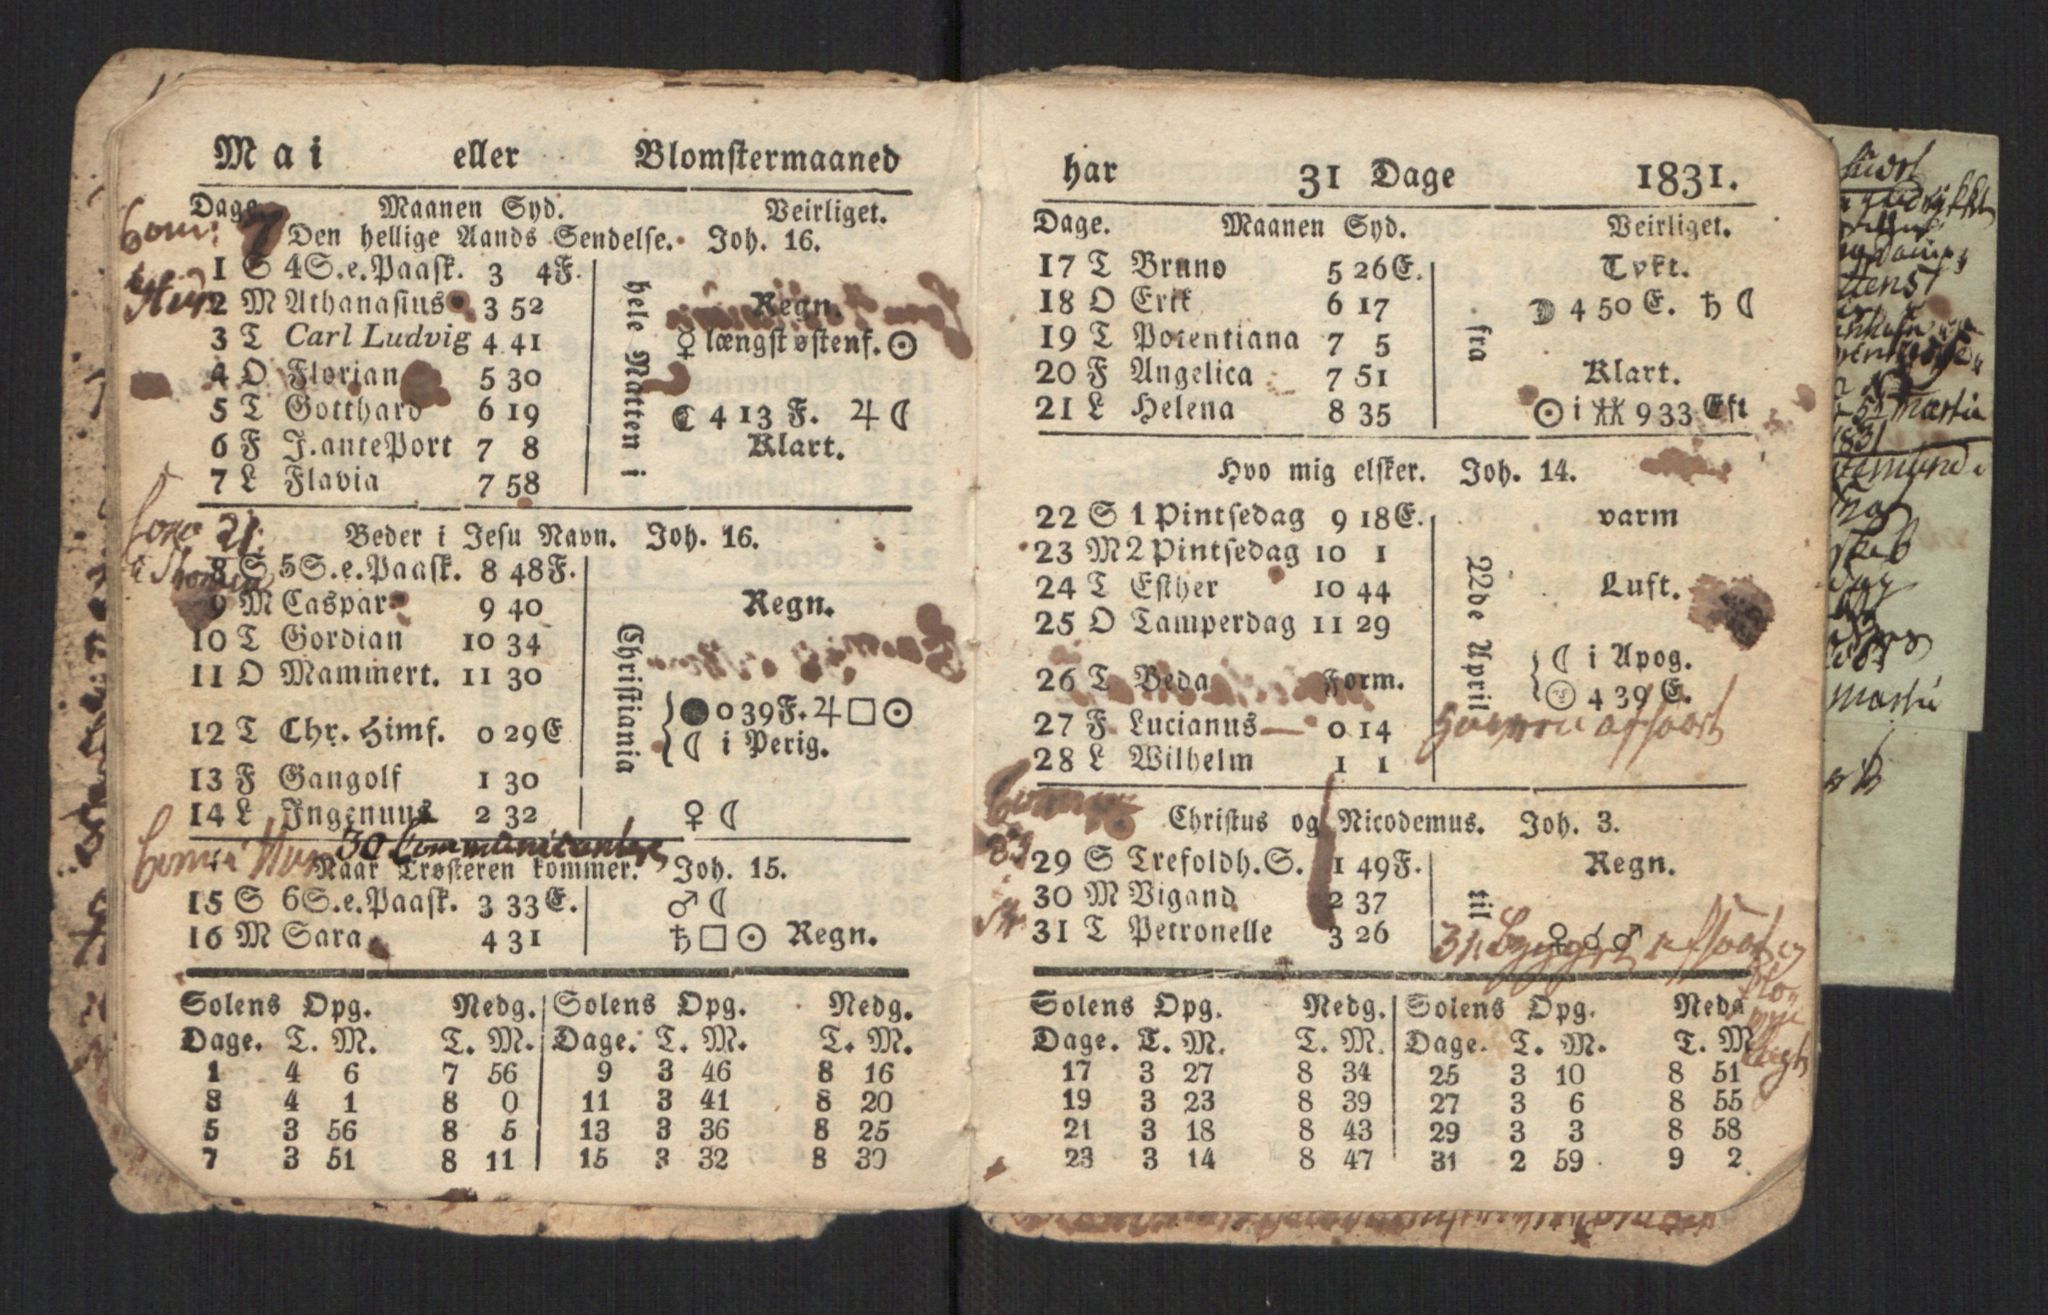 Mai eller Blomstermaaned
Dage. Maanen Syd. Veirliget.
Den hellige Aands Sendelse. Joh. 16.
1 S 4S.e.Paask. 3 4F.
2 M Athanasius 3 52 Regn.
3 T Carl Ludvig 4 41 ☿ længst østenf. ☉
4 O Florian 5 30
5 T Gotthard 6 19 ☾ 4 13 F. ♃ ☾
6 F J.antePort 7 8 Klart.
7 L Flavia 7 58
hele Natten i
Beder i Jesu Navn. Joh. 16.
8 S 5S.e.Paask. 8 48F.
9 M Caspar 9 40 Regn.
10 T Gordian 10 34
11 O Mammert. 11 30
12 T Chr. Himf. 0 29E ● 0 39F. ♃ □ ☉
☾ i Perig.
13 F Gangolf 1 30
14 L Ingenuus 2 32 ♀ ☾
Christiania
30 Communicantere
Naar Trøsteren kommer. Joh. 15.
15 S 6S.e.Paask. 3 33E. ♂ ☾
16 M Sara 4 31 ♄ □ ☉ Regn.
Solens Opg. Nedg. Solens Opg. Nedg.
Dage. T. M. T. M. Dage. T. M. T. M.
1 4 6 7 56 9 3 46 8 16
3 4 1 8 0 11 3 41 8 20
5 3 56 8 5 13 3 36 8 25
7 3 51 8 11 15 3 32 8 30
har 31 Dage 1831.
Dage. Maanen Syd. Veirliget.
17 T Bruno 5 26E. Tykt.
18 O Erik 6 17 ☽ 4 50 E. ♄ ☾
19 T Potentiana 7 5
20 F Angelica 7 51 Klart.
21 L Helena 8 35 ☉ i ♊ 9 33 Eft
fra
Hvo mig elsker. Joh. 14.
22 S 1 Pintsedag 9 18E. varm
23 M 2 Pintsedag 10 1
24 T Esther 10 44 Luft.
25 O Tamperdag 11 29
☾ i Apog.
26 T Beda Form. 4 39 E.
27 F Lucianus 0 14
28 L Wilhelm 1 1
22de April
Christus og Nicodemus. Joh. 3.
29 S Trefoldh.S. 1 49F. Regn.
30 M Vigand 2 37
31 T Petronelle 3 26 ♀ ☌ ♂
til
Solens Opg. Nedg. Solens Opg. Nedg
Dage. T. M. T. M. Dage. T. M. T. M
17 3 27 8 34 25 3 10 8 51
19 3 23 8 39 27 3 6 8 55
21 3 18 8 43 29 3 3 8 58
23 3 14 8 47 31 2 59 9 2